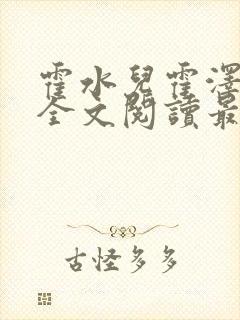 霍水兒霍澤
全文閱讀最
古怪多多